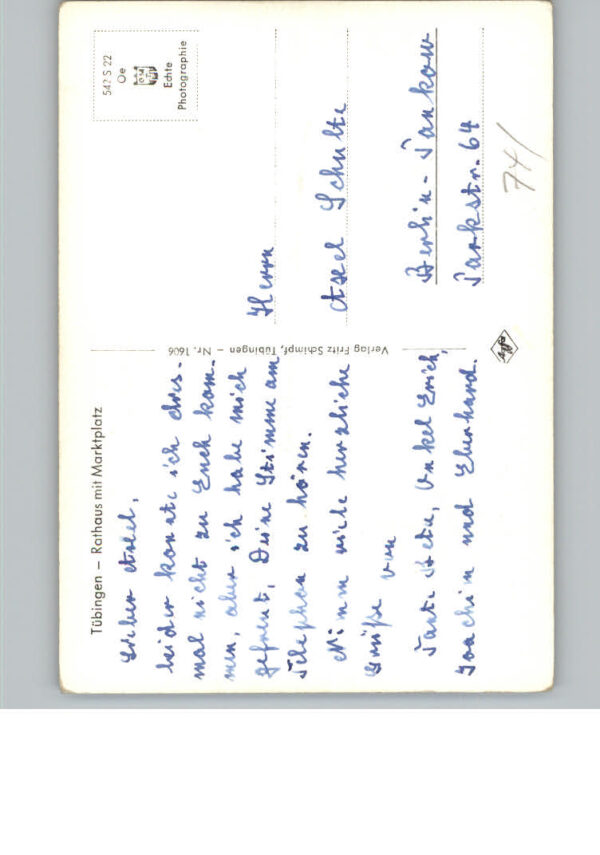 Tübingen – Rathaus mit Marktplatz
Lieber Axel,
leider konnte ich dies-
mal nicht zu Euch kom-
men, aber ich habe mich
gefreut, Deine Stimme am
Telephon zu hören.
Nimm viele herzliche
Grüße von
Tante Beta, Onkel Erich,
Joachim und Eberhard.
Verlag Fritz Schimpf, Tübingen – Nr. 1606
Agfa
542 S 22
Oe
Echte
Photographie
Herrn
Axel Schulte
Berlin-Pankow
Parkstr. 64
74/